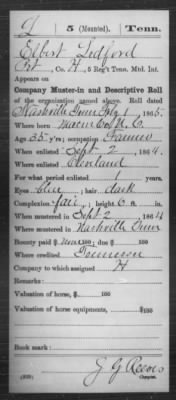 L 5 (Mounted). Tenn.
Elbert Ledford
Pvt, Co. H, 5 Reg't Tenn. Mtd. Inf.
Appears on
Company Muster-in and Descriptive Roll
of the organization named above. Roll dated
Nashville Tenn July 1, 1865.
Where born Macon Co. N. C.
Age 35 y'rs; occupation Farmer
When enlisted Sept. 2, 1864.
Where enlisted Cleveland
For what period enlisted 1 years.
Eyes blue; hair dark
Complexion fair; height 6 ft. in.
When mustered in Sept 2, 1864
Where mustered in Nashville Tenn
Bounty paid $ 100; due $ 100
Where credited
Company to which assigned H
Remarks:
Valuation of horse, $ 100
Valuation of horse equipments, $ 100
Book mark:
J G Reeves
Copyist.